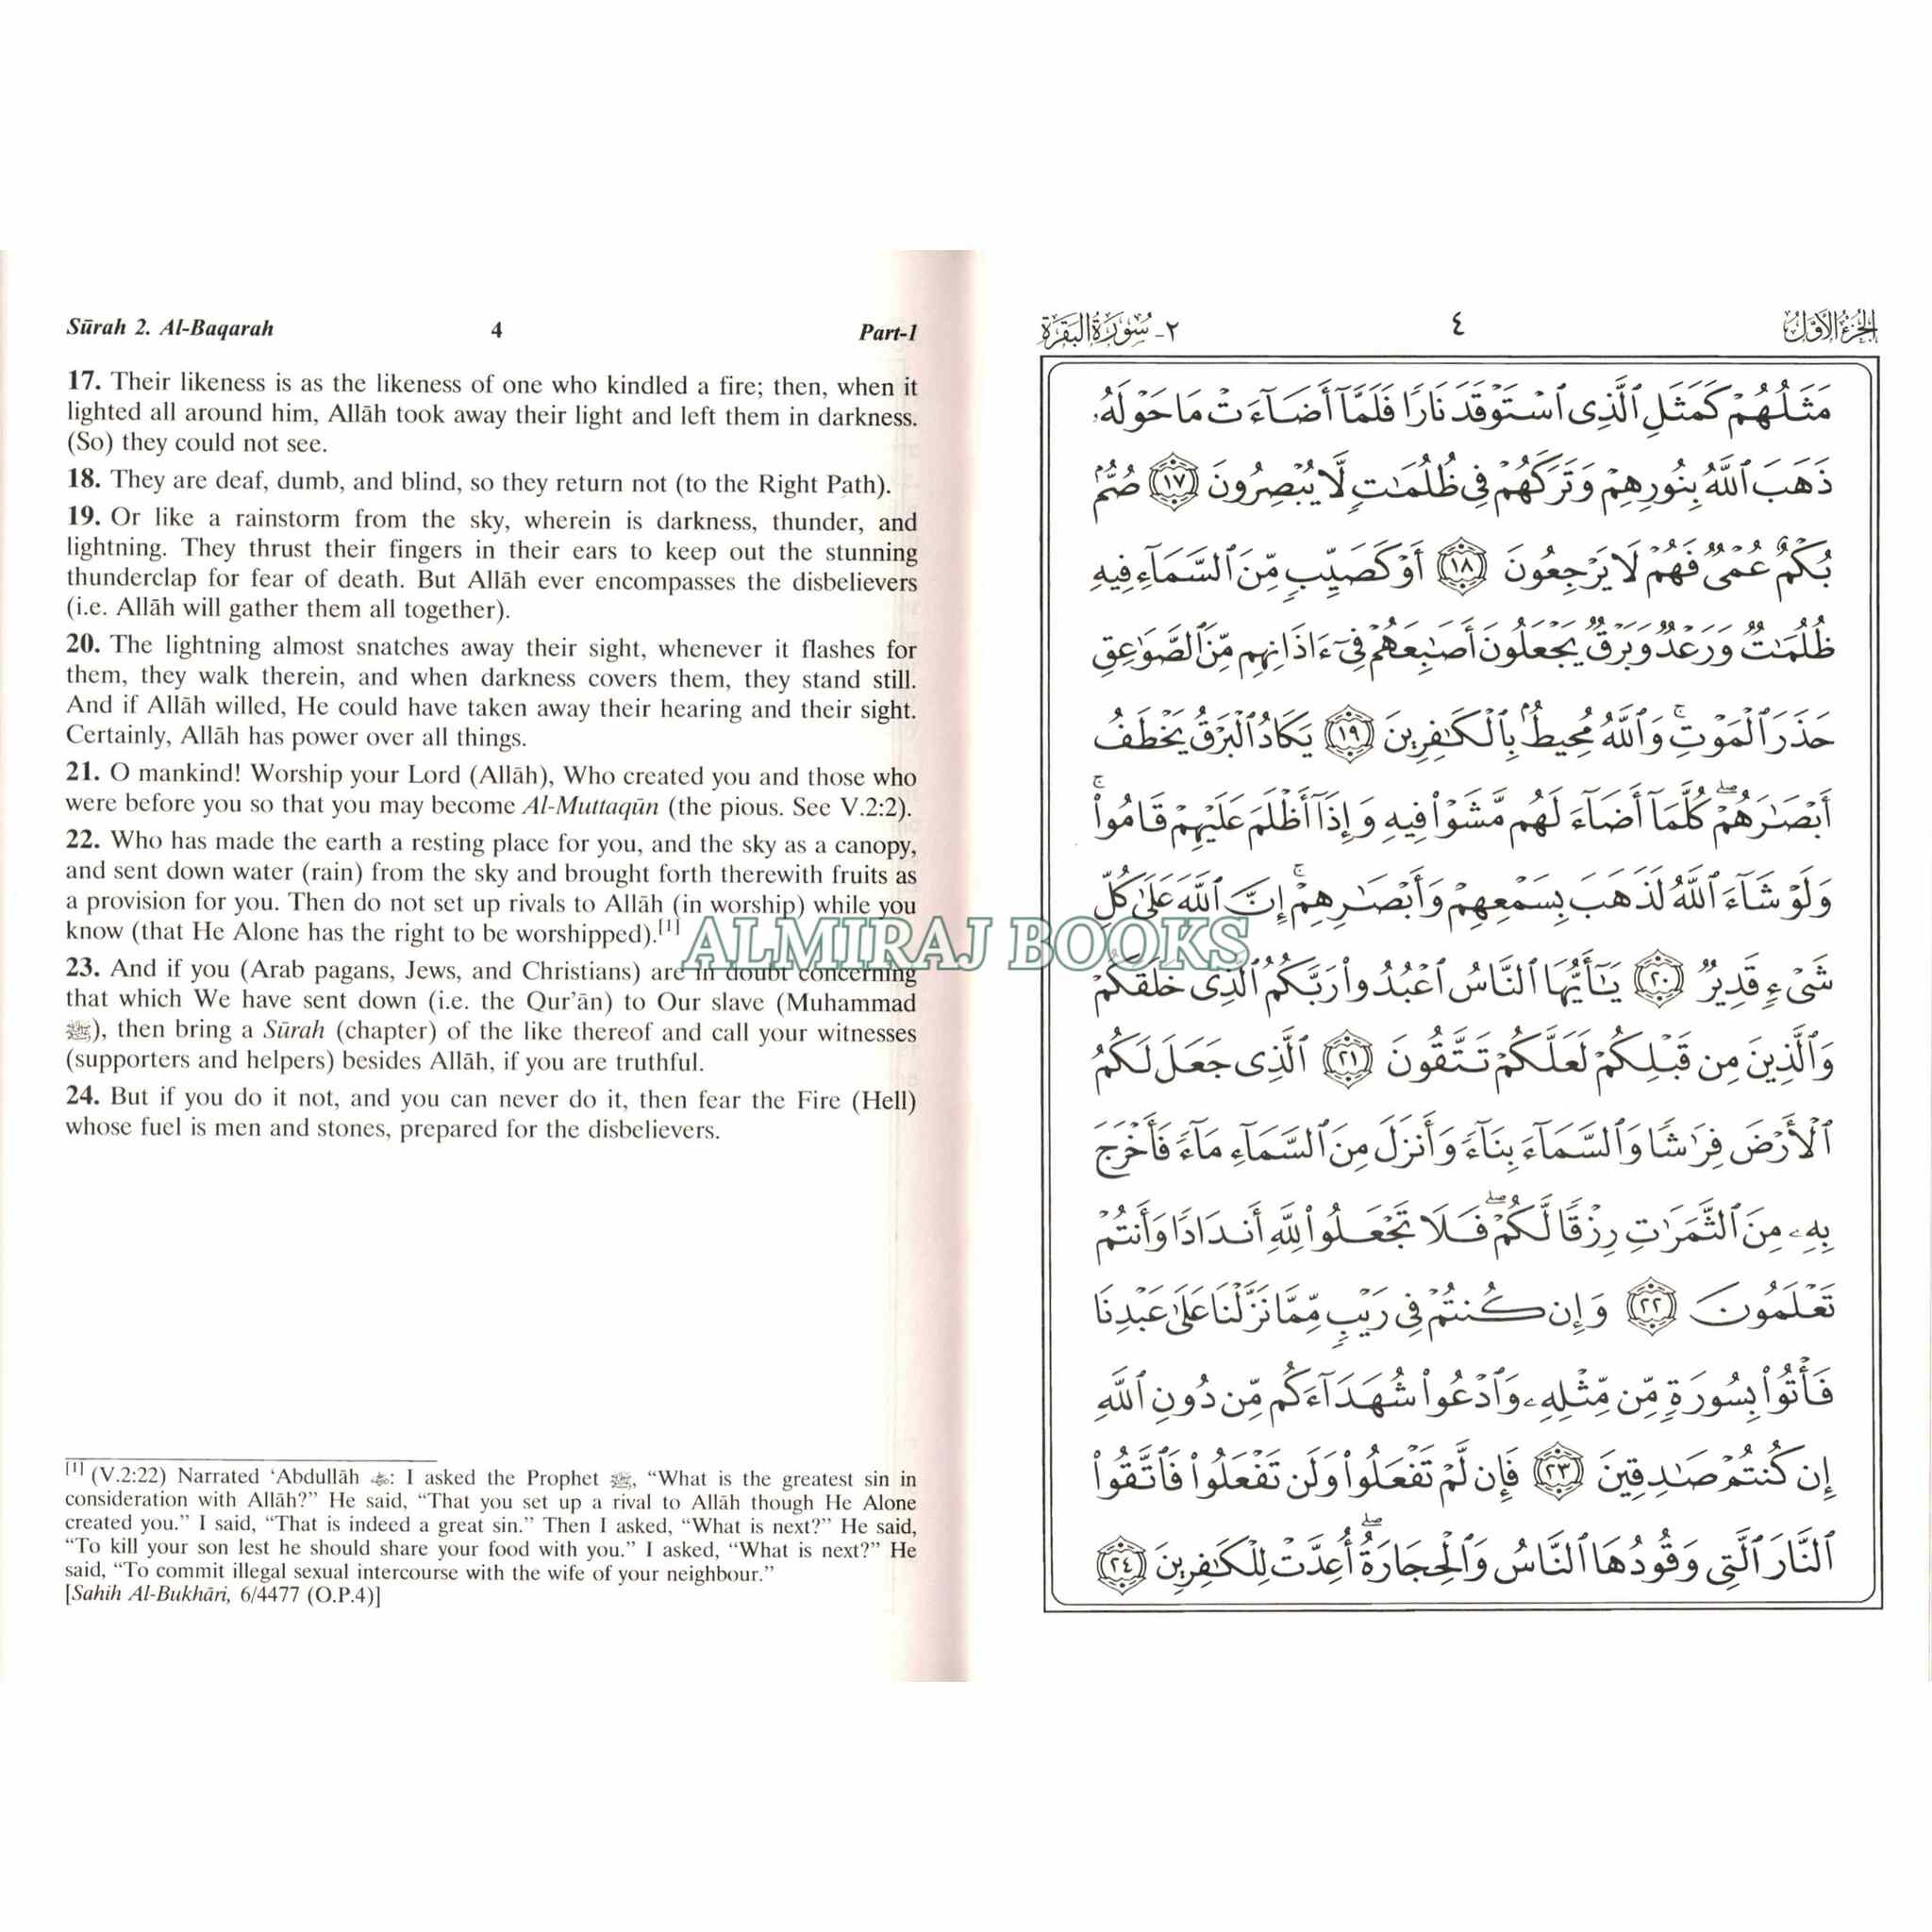 Sūrah 2. Al-Baqarah 4 Part-1
17. Their likeness is as the likeness of one who kindled a fire; then, when it
lighted all around him, Allāh took away their light and left them in darkness.
(So) they could not see.
18. They are deaf, dumb, and blind, so they return not (to the Right Path).
19. Or like a rainstorm from the sky, wherein is darkness, thunder, and
lightning. They thrust their fingers in their ears to keep out the stunning
thunderclap for fear of death. But Allāh ever encompasses the disbelievers
(i.e. Allāh will gather them all together).
20. The lightning almost snatches away their sight, whenever it flashes for
them, they walk therein, and when darkness covers them, they stand still.
And if Allāh willed, He could have taken away their hearing and their sight.
Certainly, Allāh has power over all things.
21. O mankind! Worship your Lord (Allāh), Who created you and those who
were before you so that you may become Al-Muttaqūn (the pious. See V.2:2).
22. Who has made the earth a resting place for you, and the sky as a canopy,
and sent down water (rain) from the sky and brought forth therewith fruits as
a provision for you. Then do not set up rivals to Allāh (in worship) while you
know (that He Alone has the right to be worshipped).[1]
23. And if you (Arab pagans, Jews, and Christians) are in doubt concerning
that which We have sent down (i.e. the Qur’ān) to Our slave (Muhammad
ﷺ), then bring a Sūrah (chapter) of the like thereof and call your witnesses
(supporters and helpers) besides Allāh, if you are truthful.
24. But if you do it not, and you can never do it, then fear the Fire (Hell)
whose fuel is men and stones, prepared for the disbelievers.
[1] (V.2:22) Narrated ‘Abdullāh : I asked the Prophet ﷺ, “What is the greatest sin in
consideration with Allāh?” He said, “That you set up a rival to Allāh though He Alone
created you.” I said, “That is indeed a great sin.” Then I asked, “What is next?” He said,
“To kill your son lest he should share your food with you.” I asked, “What is next?” He
said, “To commit illegal sexual intercourse with the wife of your neighbour.”
[Sahih Al-Bukhāri, 6/4477 (O.P.4)]
ALMIRAJ BOOKS
الجزء الأول ٤ ٢- سورة البقرة
مَثَلُهُمْ كَمَثَلِ ٱلَّذِى ٱسْتَوْقَدَ نَارًا فَلَمَّآ أَضَآءَتْ مَا حَوْلَهُۥ
ذَهَبَ ٱللَّهُ بِنُورِهِمْ وَتَرَكَهُمْ فِى ظُلُمَٰتٍ لَّا يُبْصِرُونَ ١٧ صُمٌّۢ
بُكْمٌ عُمْىٌ فَهُمْ لَا يَرْجِعُونَ ١٨ أَوْ كَصَيِّبٍ مِّنَ ٱلسَّمَآءِ فِيهِ
ظُلُمَٰتٌ وَرَعْدٌ وَبَرْقٌ يَجْعَلُونَ أَصَٰبِعَهُمْ فِىٓ ءَاذَانِهِم مِّنَ ٱلصَّوَٰعِقِ
حَذَرَ ٱلْمَوْتِ ۚ وَٱللَّهُ مُحِيطٌۢ بِٱلْكَٰفِرِينَ ١٩ يَكَادُ ٱلْبَرْقُ يَخْطَفُ
أَبْصَٰرَهُمْ ۖ كُلَّمَآ أَضَآءَ لَهُم مَّشَوْا۟ فِيهِ وَإِذَآ أَظْلَمَ عَلَيْهِمْ قَامُوا۟ ۚ
وَلَوْ شَآءَ ٱللَّهُ لَذَهَبَ بِسَمْعِهِمْ وَأَبْصَٰرِهِمْ ۚ إِنَّ ٱللَّهَ عَلَىٰ كُلِّ
شَىْءٍ قَدِيرٌ ٢٠ يَٰٓأَيُّهَا ٱلنَّاسُ ٱعْبُدُوا۟ رَبَّكُمُ ٱلَّذِى خَلَقَكُمْ
وَٱلَّذِينَ مِن قَبْلِكُمْ لَعَلَّكُمْ تَتَّقُونَ ٢١ ٱلَّذِى جَعَلَ لَكُمُ
ٱلْأَرْضَ فِرَٰشًا وَٱلسَّمَآءَ بِنَآءً وَأَنزَلَ مِنَ ٱلسَّمَآءِ مَآءً فَأَخْرَجَ
بِهِۦ مِنَ ٱلثَّمَرَٰتِ رِزْقًا لَّكُمْ ۖ فَلَا تَجْعَلُوا۟ لِلَّهِ أَندَادًا وَأَنتُمْ
تَعْلَمُونَ ٢٢ وَإِن كُنتُمْ فِى رَيْبٍ مِّمَّا نَزَّلْنَا عَلَىٰ عَبْدِنَا
فَأْتُوا۟ بِسُورَةٍ مِّن مِّثْلِهِۦ وَٱدْعُوا۟ شُهَدَآءَكُم مِّن دُونِ ٱللَّهِ
إِن كُنتُمْ صَٰدِقِينَ ٢٣ فَإِن لَّمْ تَفْعَلُوا۟ وَلَن تَفْعَلُوا۟ فَٱتَّقُوا۟
ٱلنَّارَ ٱلَّتِى وَقُودُهَا ٱلنَّاسُ وَٱلْحِجَارَةُ ۖ أُعِدَّتْ لِلْكَٰفِرِينَ ٢٤